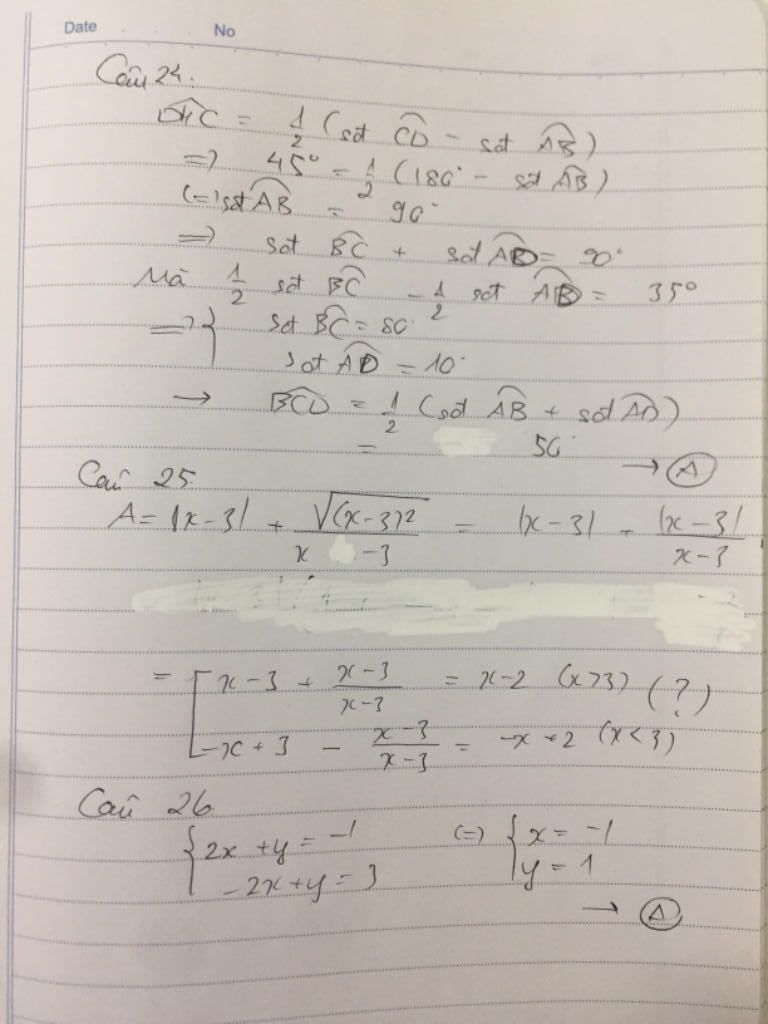 Date No
Câu 24.
= 1/2 (sđt CD - sđt AB)
=> 45° = 1/2 (180° - sđt AB)
(=) sđt AB = 90°
=> sđt BC + sđt AD = 90°
Mà 1/2 sđt BC - 1/2 sđt AD = 35°
=> { sđt BC = 80°
sđt AD = 10°
→ BCD = 1/2 (sđt AB + sđt AD)
= 50°
→ A
Câu 25
A = |x-3| + √(x-3)2 / x -3 = |x-3| - |x-3| / x-3
= [ x-3 + x-3 / x-3 = x-2 (x>3) (?)
-x+3 - x-3 / x-3 = -x+2 (x<3)
Câu 26.
{ 2x +y = -1 (=) { x = -1
-2x+y = 3 y = 1
→ A